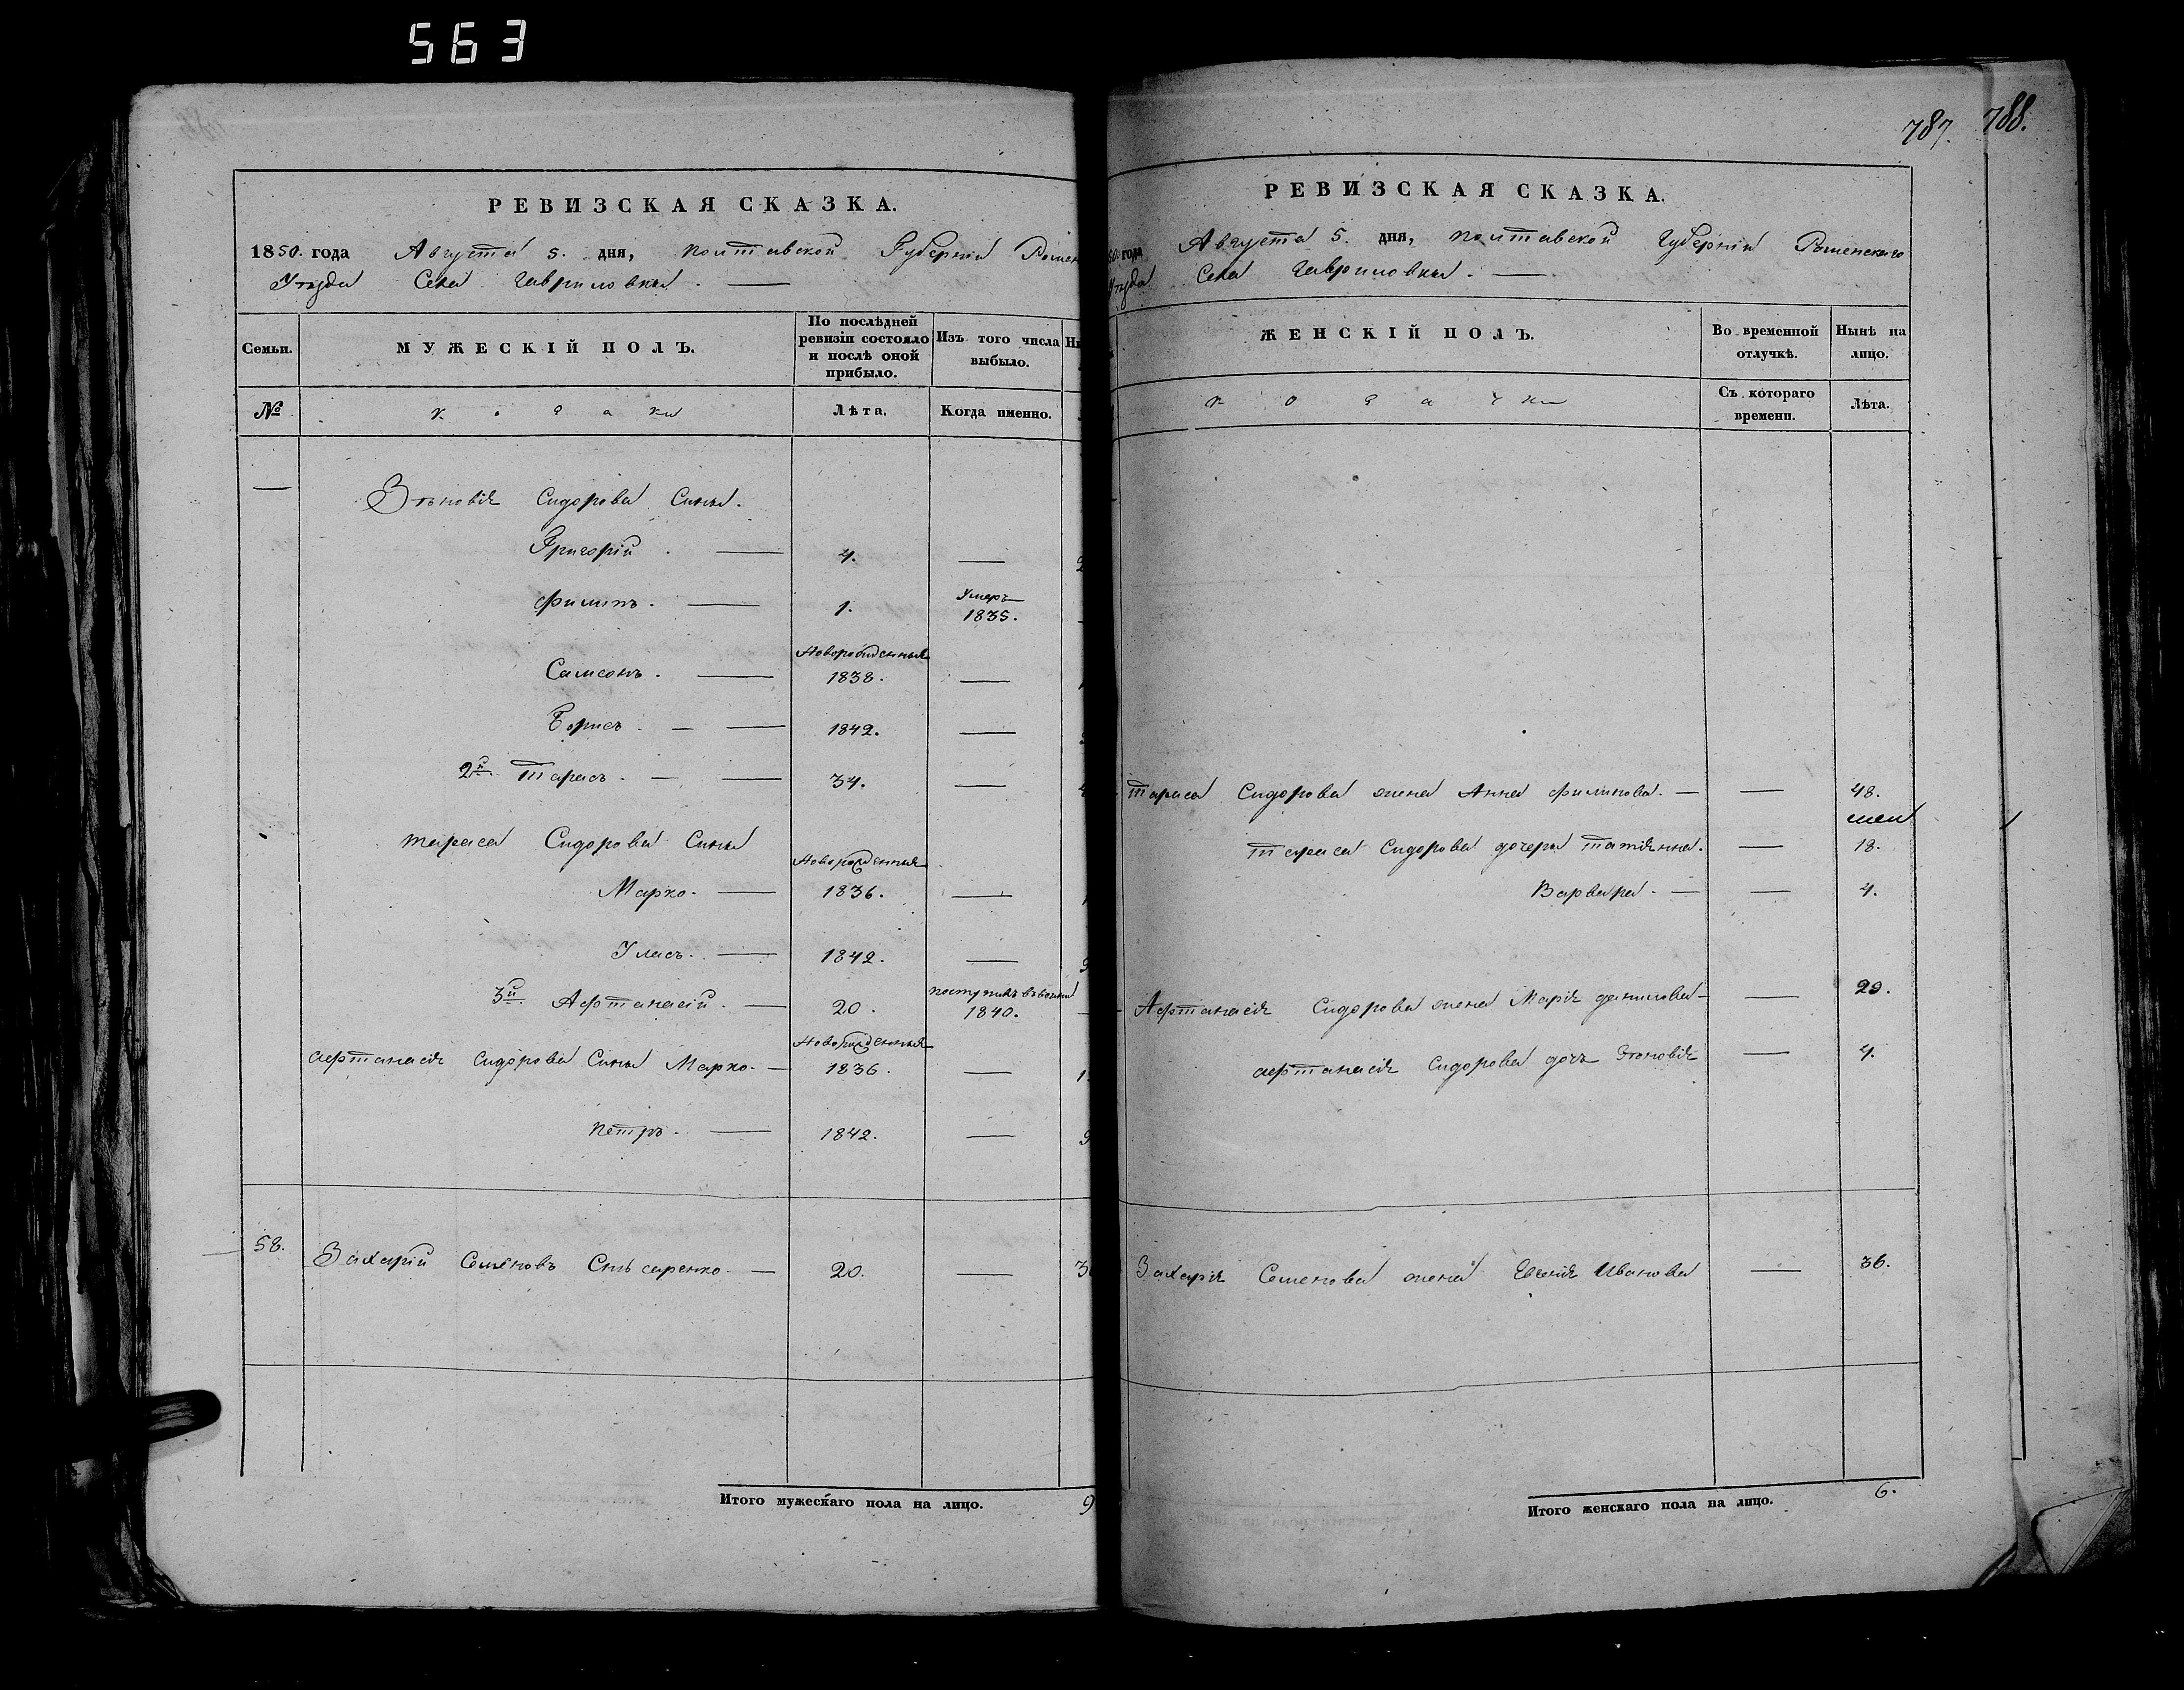 563
РЕВИЗСКАЯ СКАЗКА.
1850. года Августа 5. дня, Полтавской Губерніи Ромен
Уѣзда Села Гавриловки.
Семьи. МУЖЕСКІЙ ПОЛЪ. По послѣдней ревизіи состояло и послѣ оной прибыло. Изъ того числа выбыло.
№ козаки Лѣта. Когда именно.
Зѣновія Сидорова Сины.
Григорій. 4.
Филипъ. 1. Умеръ 1835.
Новорожденныя
Самсонъ. 1838.
Борисъ. 1842.
2й Тарасъ. 34.
Тараса Сидорова Сины
Новорожденныя
Марко. 1836.
Уласъ. 1842.
3й Афтанасій. 20. 1840.
Новорожденныя
Афтанасія Сидорова Сины Марко. 1836.
Петръ. 1842.
58. Захарій Семеновъ 20.
Итого мужескаго пола на лицо. 9
787. 788.
РЕВИЗСКАЯ СКАЗКА.
50. года Августа 5. дня, Полтавской Губерніи Роменскаго
Уѣзда Села Гавриловки.
ЖЕНСКІЙ ПОЛЪ. Во временной отлучкѣ. Нынѣ на лицо.
козачки Съ котораго времени. Лѣта.
Тараса Сидорова жена Анна Филипова. 48.
Тараса Сидорова дочери Татіянна. 18.
Варвара. 4.
Афтанасія Сидорова жена Марія Данилова 29.
Афтанасія Сидорова дочь Зѣновія 4.
Захарія Семенова жена Евгенія Иванова 36.
Итого женскаго пола на лицо. 6.